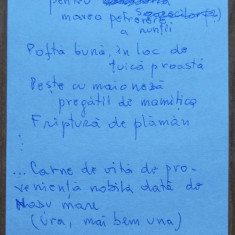 pentru
marea petrecere
a nunții
Pofta bună, în loc de
țuică proastă
Pește cu maioneză
pregătit de mămițica
Friptură de plămân
... Carne de vită de pro-
veniență nobilă dată de
Nasu mare
(Ura, mai bem una)